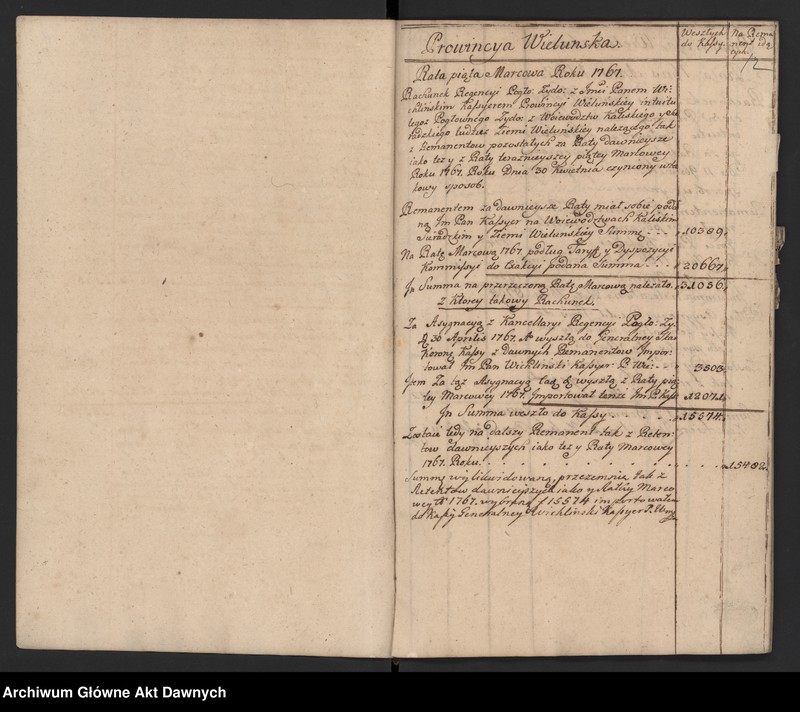 Prowincya Wielunska.
Weszłych do Kassy.
Na Remanent idących.
12
Rata piąta Marcowa Roku 1767.
Rachunek Regencyi Pogło: Żydo: z Imci Panem Wi:
chlińskim Kassyerem Prowincyi Wieluńskiey intuitu
tegoż Pogłownego Żydo: z Woiewodztw Kaliskiego y Sie
radzkiego tudzież Ziemi Wieluńskiey należącego tak
z Remanentow pozostałych za Raty dawnieysze
iako też y z Raty teraznieyszey piątey Marcowey
Roku 1767. Roku Dnia 30 Kwietnia czyniony w ta
kowy sposob.
Remanentem za dawnieysze Raty miał sobie poda
ną Im Pan Kassyer na Woiewodztwach Kaliskim
Siradzkim y Ziemi Wieluńskiey Summę . . . 10389.
Na Ratę Marcową 1767. podług Taryff y Dyspozycyi
Kommissyi do Exakcyi podana Summa . . . 20667.
In Summa na przerzeczoną Ratę Marcową należało. 31056.
z Ktorey takowy Rachunek.
Za Asygnacyą z Kancellaryi Regencyi Pogło: Ży:
30 Aprilis 1767. wyszłą do Generalney Ska
Koronn. Kassy z dawnych Remanentow Impor:
tował Im Pan Wichliński Kassyer P. Wie: . . 3503
Item Za tąż Asygnacyą wyszłą z Raty pią
tey Marcowey 1767. Importował tenże Im P. Kass: 12071.
In Summa weszło do Kassy . . . . . 15574.
Zostaie tedy na dalszy Remanent tak z Reten:
tow dawnieyszych iako też y Raty Marcowey
1767. Roku. . . . . . . . . . 15482.
Summę wylikwidowaną, przezemnie tak z
Retentow dawnieyszych iako y Raty Marco
wey 1767. wybraną f 15574 importowałem
do Kassy Generalney Wichliński Kassyer P.
Archiwum Główne Akt Dawnych